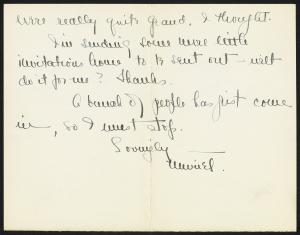 were really quite grand, I thought.
I'm sending some more little
invitations home to be sent out – will
do it for me? Thanks.
A bunch of people has just come
in, so I must stop.
Lovingly
Muriel.